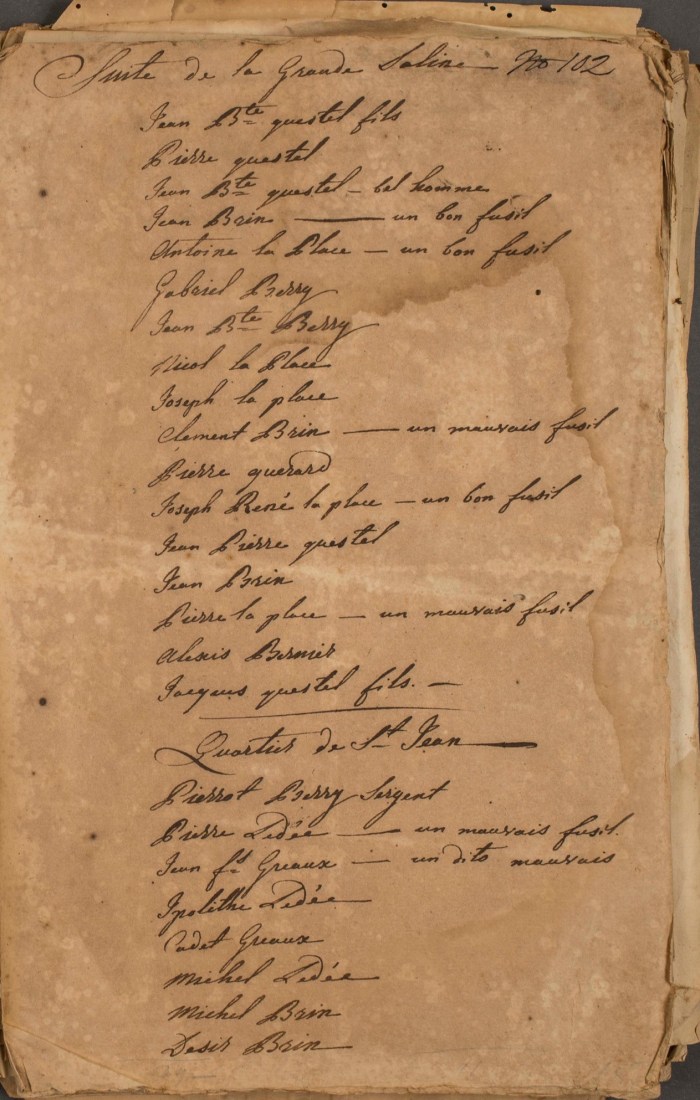 Suite de la Grande Saline No 102
Jean Bte questel fils
Pierre questel
Jean Bte questel - bel homme
Jean Brin — un bon fusil
Antoine la Place — un bon fusil
Gabriel Berry
Jean Bte Berry
Nicol la Place
Joseph la place
Clement Brin — un mauvais fusil
Pierre querard
Joseph René la place — un bon fusil
Jean Pierre questel
Jean Brin
Pierre la place — un mauvais fusil
Alexis Bernier
Jacques questel fils. —
Quartier de St Jean —
Pierrot Berry Sergent
Pierre Ledée — un mauvais fusil.
Jean fs Greaux — un dito mauvais
Ipolithe Ledée
Cadet Greaux
Michel Ledée
Michel Brin
Desir Brin